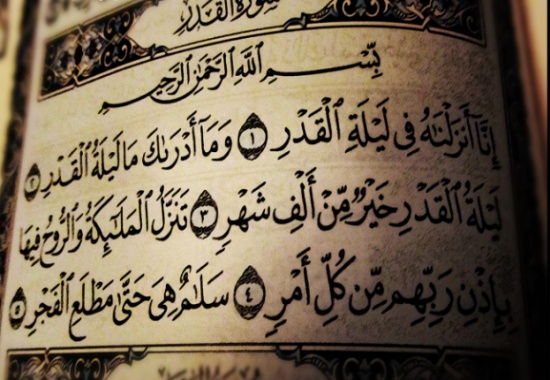 سُورَةُ القَدْرِ
بِسْمِ اللَّهِ الرَّحْمَٰنِ الرَّحِيمِ
إِنَّا أَنزَلْنَاهُ فِي لَيْلَةِ الْقَدْرِ ١ وَمَا أَدْرَاكَ مَا لَيْلَةُ الْقَدْرِ ٢
لَيْلَةُ الْقَدْرِ خَيْرٌ مِّنْ أَلْفِ شَهْرٍ ٣ تَنَزَّلُ الْمَلَائِكَةُ وَالرُّوحُ فِيهَا
بِإِذْنِ رَبِّهِم مِّن كُلِّ أَمْرٍ ٤ سَلَامٌ هِيَ حَتَّىٰ مَطْلَعِ الْفَجْرِ ٥